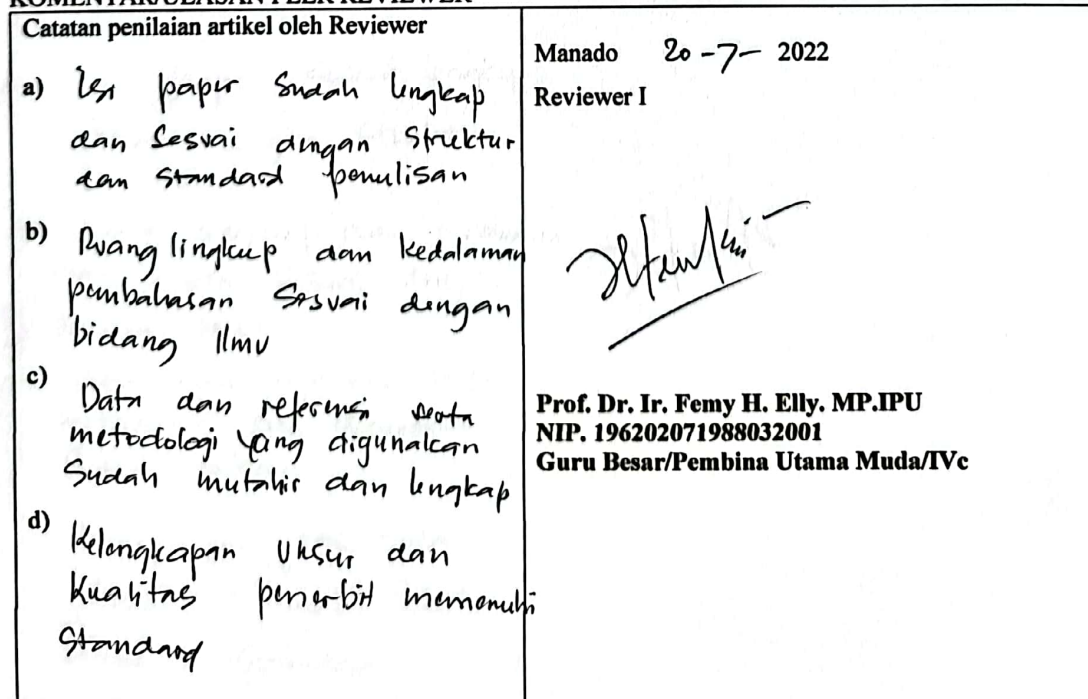 KOMENTAR/ULASAN PEER REVIEWER
Catatan penilaian artikel oleh Reviewer
a) Isi paper sudah lengkap
dan sesuai dengan struktur
dan standard penulisan
b) Ruang lingkup dan kedalaman
pembahasan sesuai dengan
bidang Ilmu
c) Data dan referensi serta
metodologi yang digunakan
sudah mutahir dan lengkap
d) Kelengkapan unsur dan
kualitas penerbit memenuhi
standard
Manado 20-7- 2022
Reviewer I
Prof. Dr. Ir. Femy H. Elly. MP.IPU
NIP. 196202071988032001
Guru Besar/Pembina Utama Muda/IVc